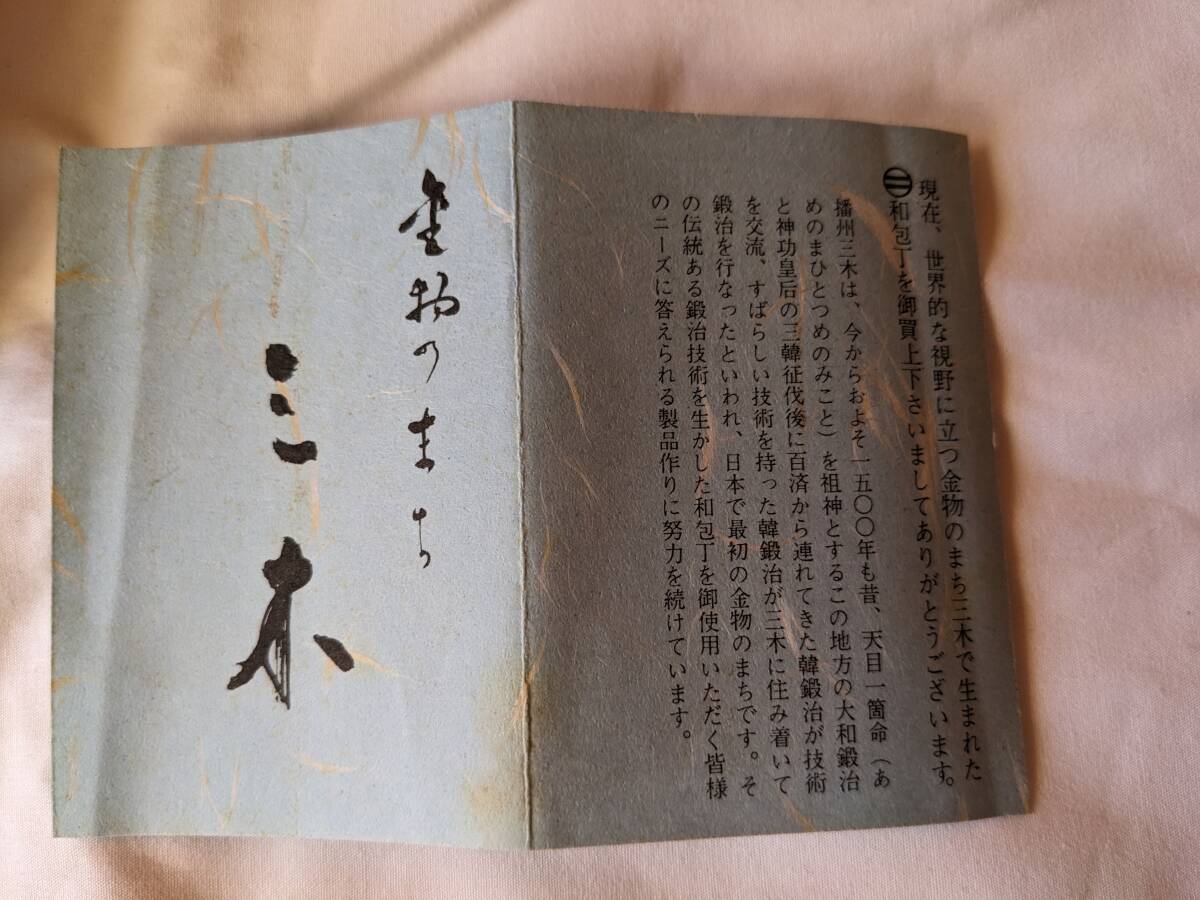 現在、世界的な視野に立つ金物のまち三木で生まれた
㊂和包丁を御買上下さいましてありがとうございます。
播州三木は、今からおよそ一五〇〇年も昔、天目一箇命（あ
めのまひとつめのみこと）を祖神とするこの地方の大和鍛治
と神功皇后の三韓征伐後に百済から連れてきた韓鍛治が技術
を交流、すばらしい技術を持った韓鍛治が三木に住み着いて
鍛治を行なったといわれ、日本で最初の金物のまちです。そ
の伝統ある鍛治技術を生かした和包丁を御使用いただく皆様
のニーズに答えられる製品作りに努力を続けています。
金物のまち
三木